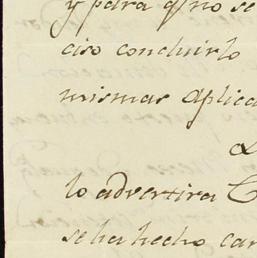 y para q̃ no se
ciso concluirlo
mismas aplica
lo advertira
se ha hecho car